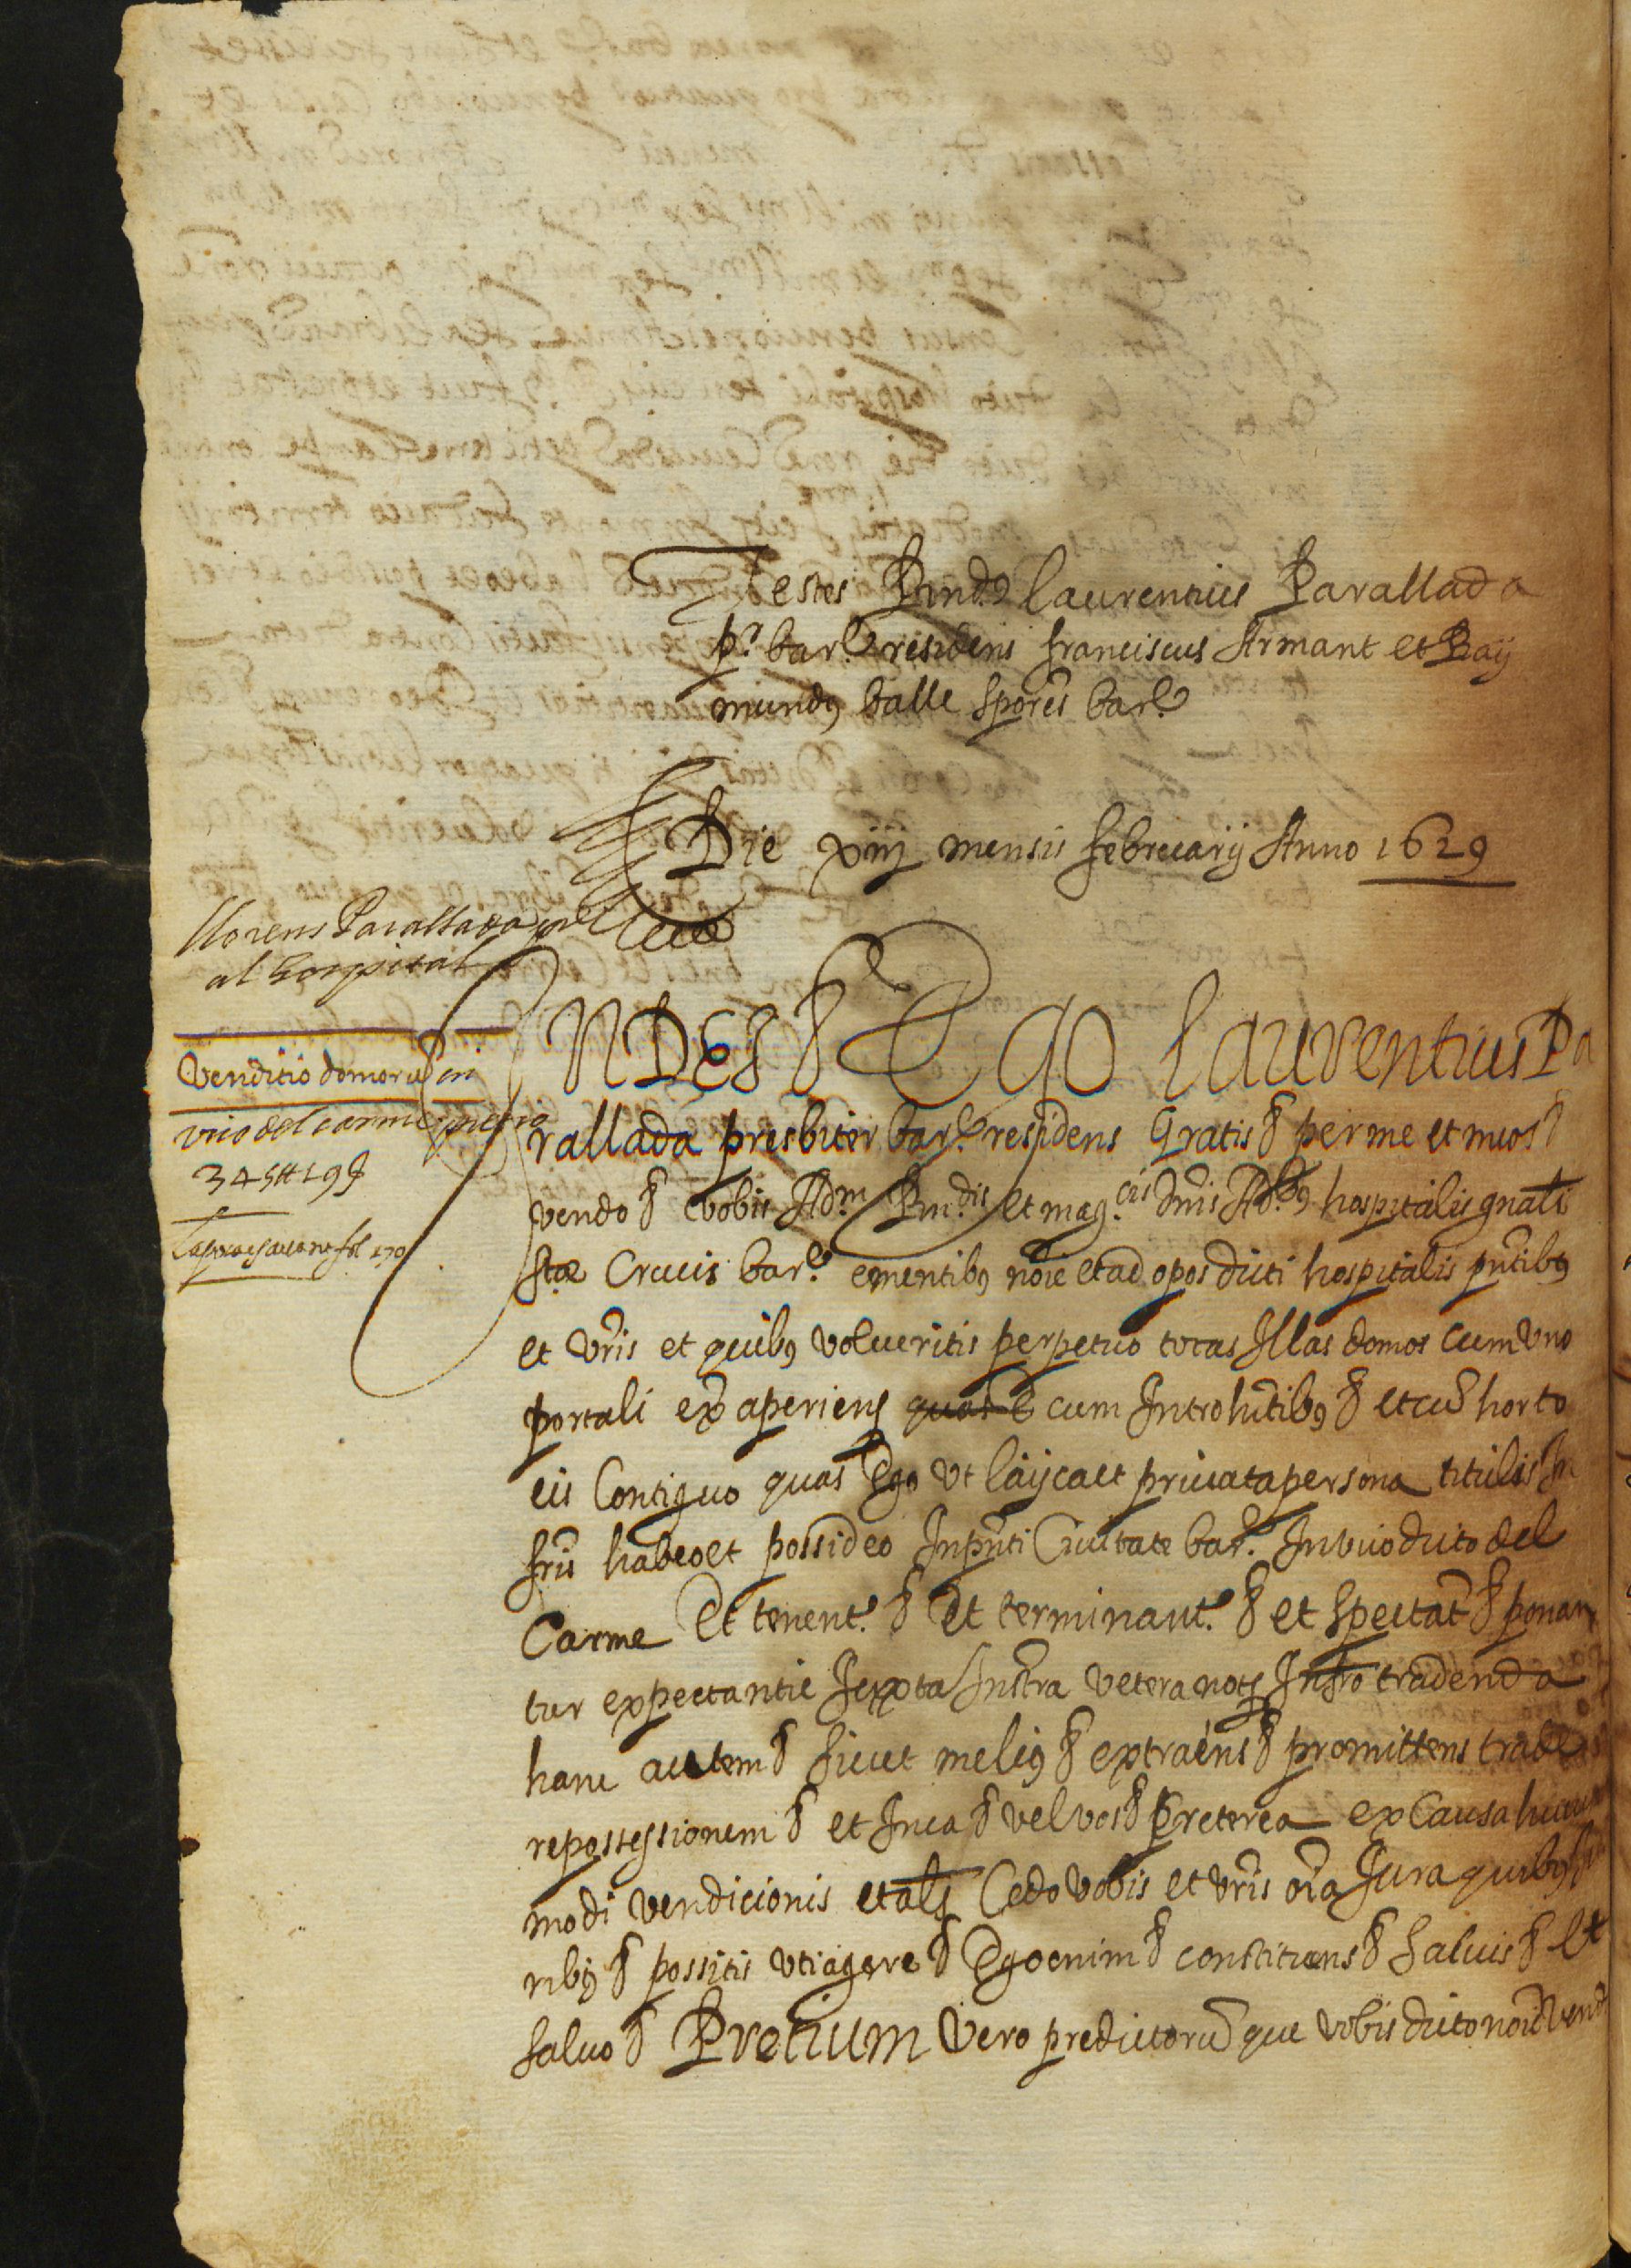 Testes Rnd.9 Laurentius Parallada
pr bar.e residens franciscus Armant et Ray
mund9 balle sponês bar.e
Die xiij mensis februarij Anno 1629
llorens Parallada pre
al hospital
Venditio domoru in
vico del carme precio
345 tt 19 ſ
fol 170
IN DEI Ego Laurentius Pa
rallada presbiter bar.e residens Gratis & per me et meos &
vendo & vobis Adm. Rn.dis et mag.cis dnis Ad.b9 hospitalis gnalis
stae Crucis bar.e ementib9 noîe et ad opos dicti hospitalis pntib9
et vris et quib9 volueritis perpetuo totas Illas domos cum vno
portali ex aperiens quas E cum Introhitib9 & et cu horto
eis Contiguo quas Ego vt layca et priuata persona titulis In
fris habeo et possideo In pnti Ciuitate bar.e In vico dicto del
Carme Et tenent.e & Et terminant.e & et spectat & ponan
tur expectantie Iuxta Instra vetera notr Infro tradenda
hanc autem & sicut meli9 & extraens & promittens trade
re possessionem & et Inca & vel vos & Preterea ex Causa huius
modi vendicionis et als Cedo vobis et vris oîa Iura quib9 Iu
rib9 & possitis vti agere & Ego enim & constituens & Saluis & Et
saluo & Pretium vero predictoru que vobis dicto noîe vend